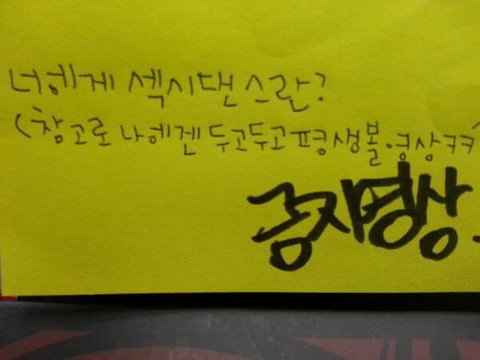 너에게 섹시댄스란?
(참고로 나에겐 두고두고 평생볼.영상ㅋㅋ)
금지영상.